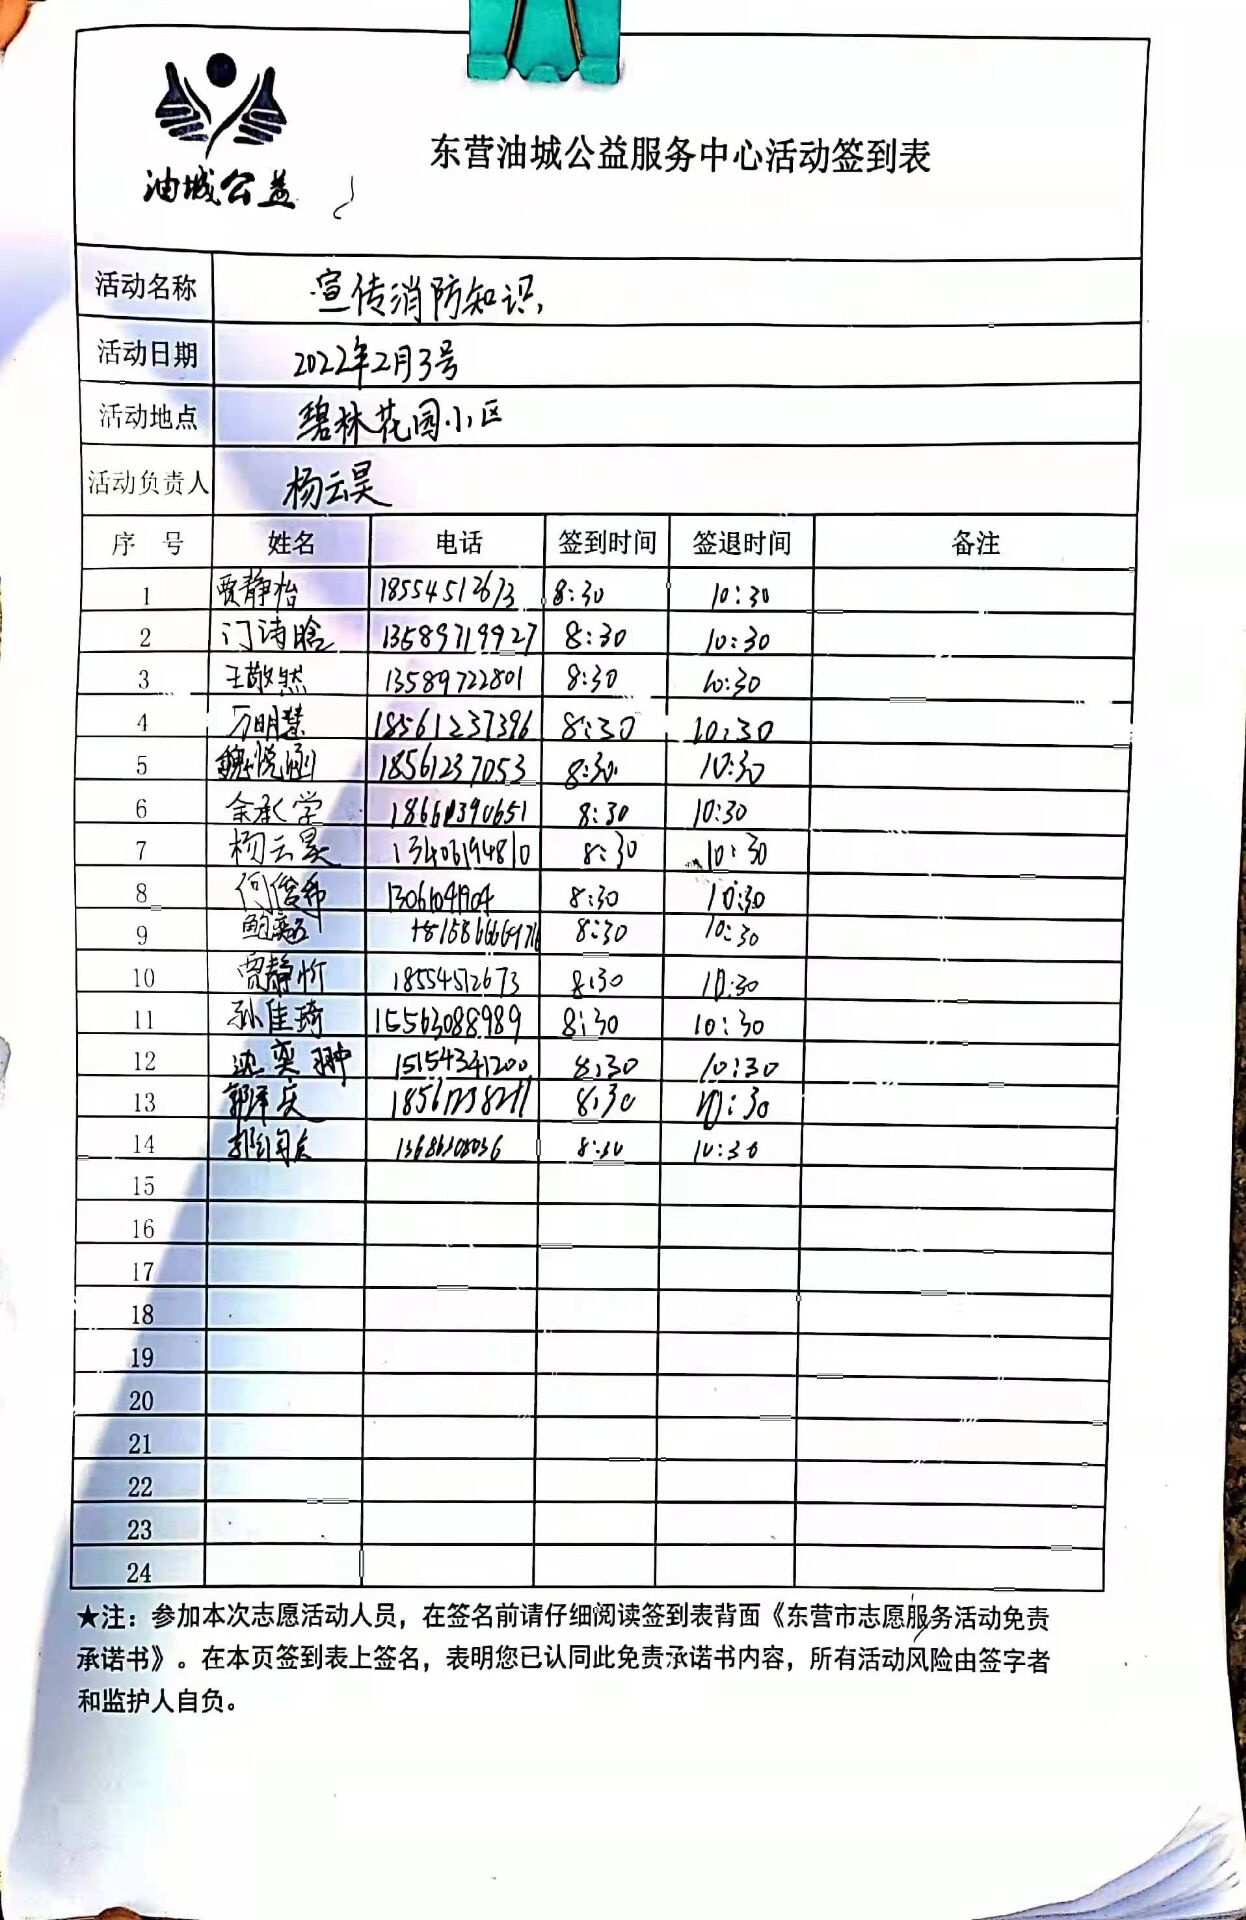 油城公益
东营油城公益服务中心活动签到表
活动名称 宣传消防知识
活动日期 2022年2月3号
活动地点 碧林花园小区
活动负责人 杨云昊
序 号 姓名 电话 签到时间 签退时间 备注
1 贾静怡 18554512673 8:30 10:30
2 门诗晗 13589719927 8:30 10:30
3 王敬然 13589722801 8:30 10:30
4 万明慧 18561237396 8:30 10:30
5 魏悦涵 18561237053 8:30 10:30
6 余承学 8:30 10:30
7 杨云昊 13406194810 8:30 10:30
8 何俊希 8:30 10:30
9 8:30 10:30
10 贾静忻 18554512673 8:30 10:30
11 孙佳琦 15563088989 8:30 10:30
12 沈奕翀 15154341200 8:30 10:30
13 8:30 10:30
14 8:30 10:30
15
16
17
18
19
20
21
22
23
24
★注：参加本次志愿活动人员，在签名前请仔细阅读签到表背面《东营市志愿服务活动免责
承诺书》。在本页签到表上签名，表明您已认同此免责承诺书内容，所有活动风险由签字者
和监护人自负。